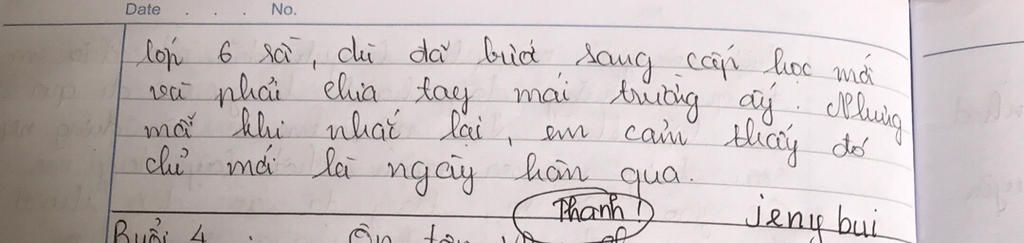 Date . . . No.
lớp 6 rồi, dù đã biết sang cấp học mới
và phải chia tay mái trường ấy. Nhưng
mỗi khi nhắc lại, em cảm thấy đó
chỉ mới là ngày hôm qua.
Thanh!
jeny bui
Buổi 4 Ôn